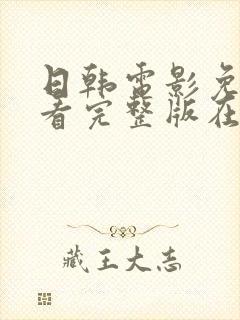 日韩电影免
看完整版在
藏王大志